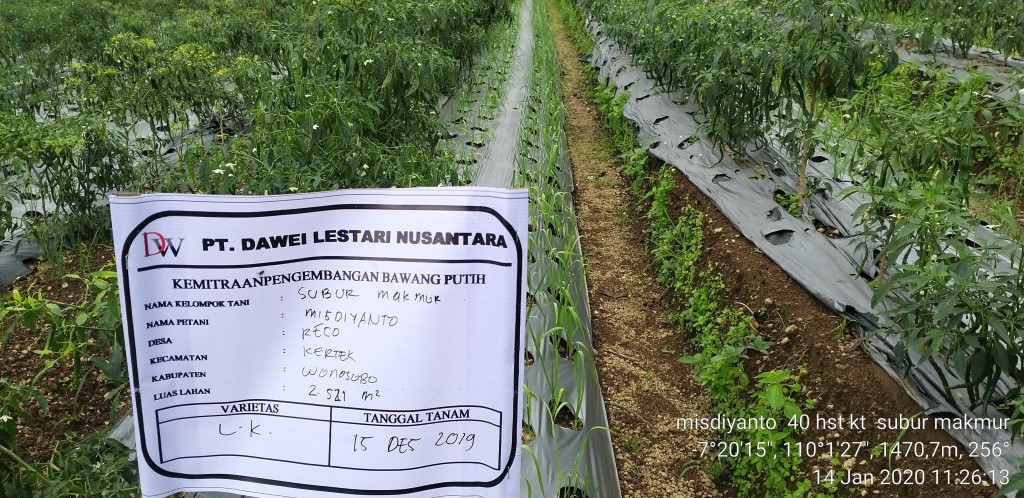 DW PT. DAWEI LESTARI NUSANTARA
KEMITRAANPENGEMBANGAN BAWANG PUTIH
NAMA KELOMPOK TANI : SUBUR makmur
NAMA PETANI : MISDIYANTO
DESA : RECO
KECAMATAN : KERTEK
KABUPATEN : WONOSOBO
LUAS LAHAN : 2.521 m²
VARIETAS TANGGAL TANAM
L.K. 15 DES 2019
misdiyanto 40 hst kt subur makmur
-7°20'15", 110°1'27", 1470,7m, 256°
14 Jan 2020 11:26:13